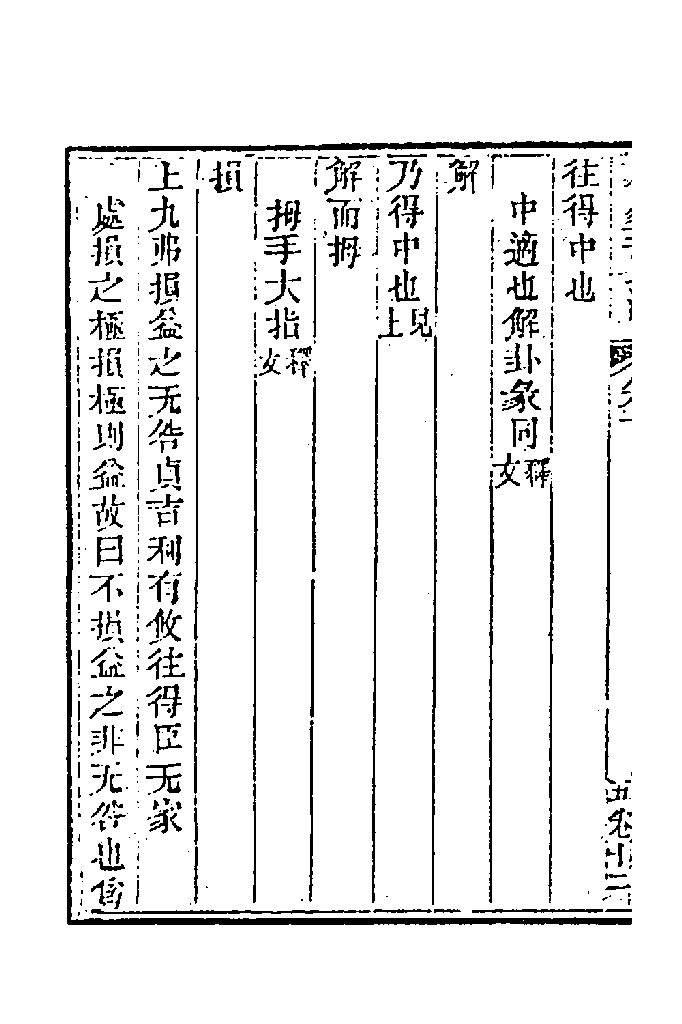 往得中也
中適也解卦彖同釋文
解
乃得中也見上
解而拇
拇手大指釋文
損
上九弗損益之无咎貞吉利有攸往得臣无家
處損之極損極則益故曰不損益之非无咎也爲